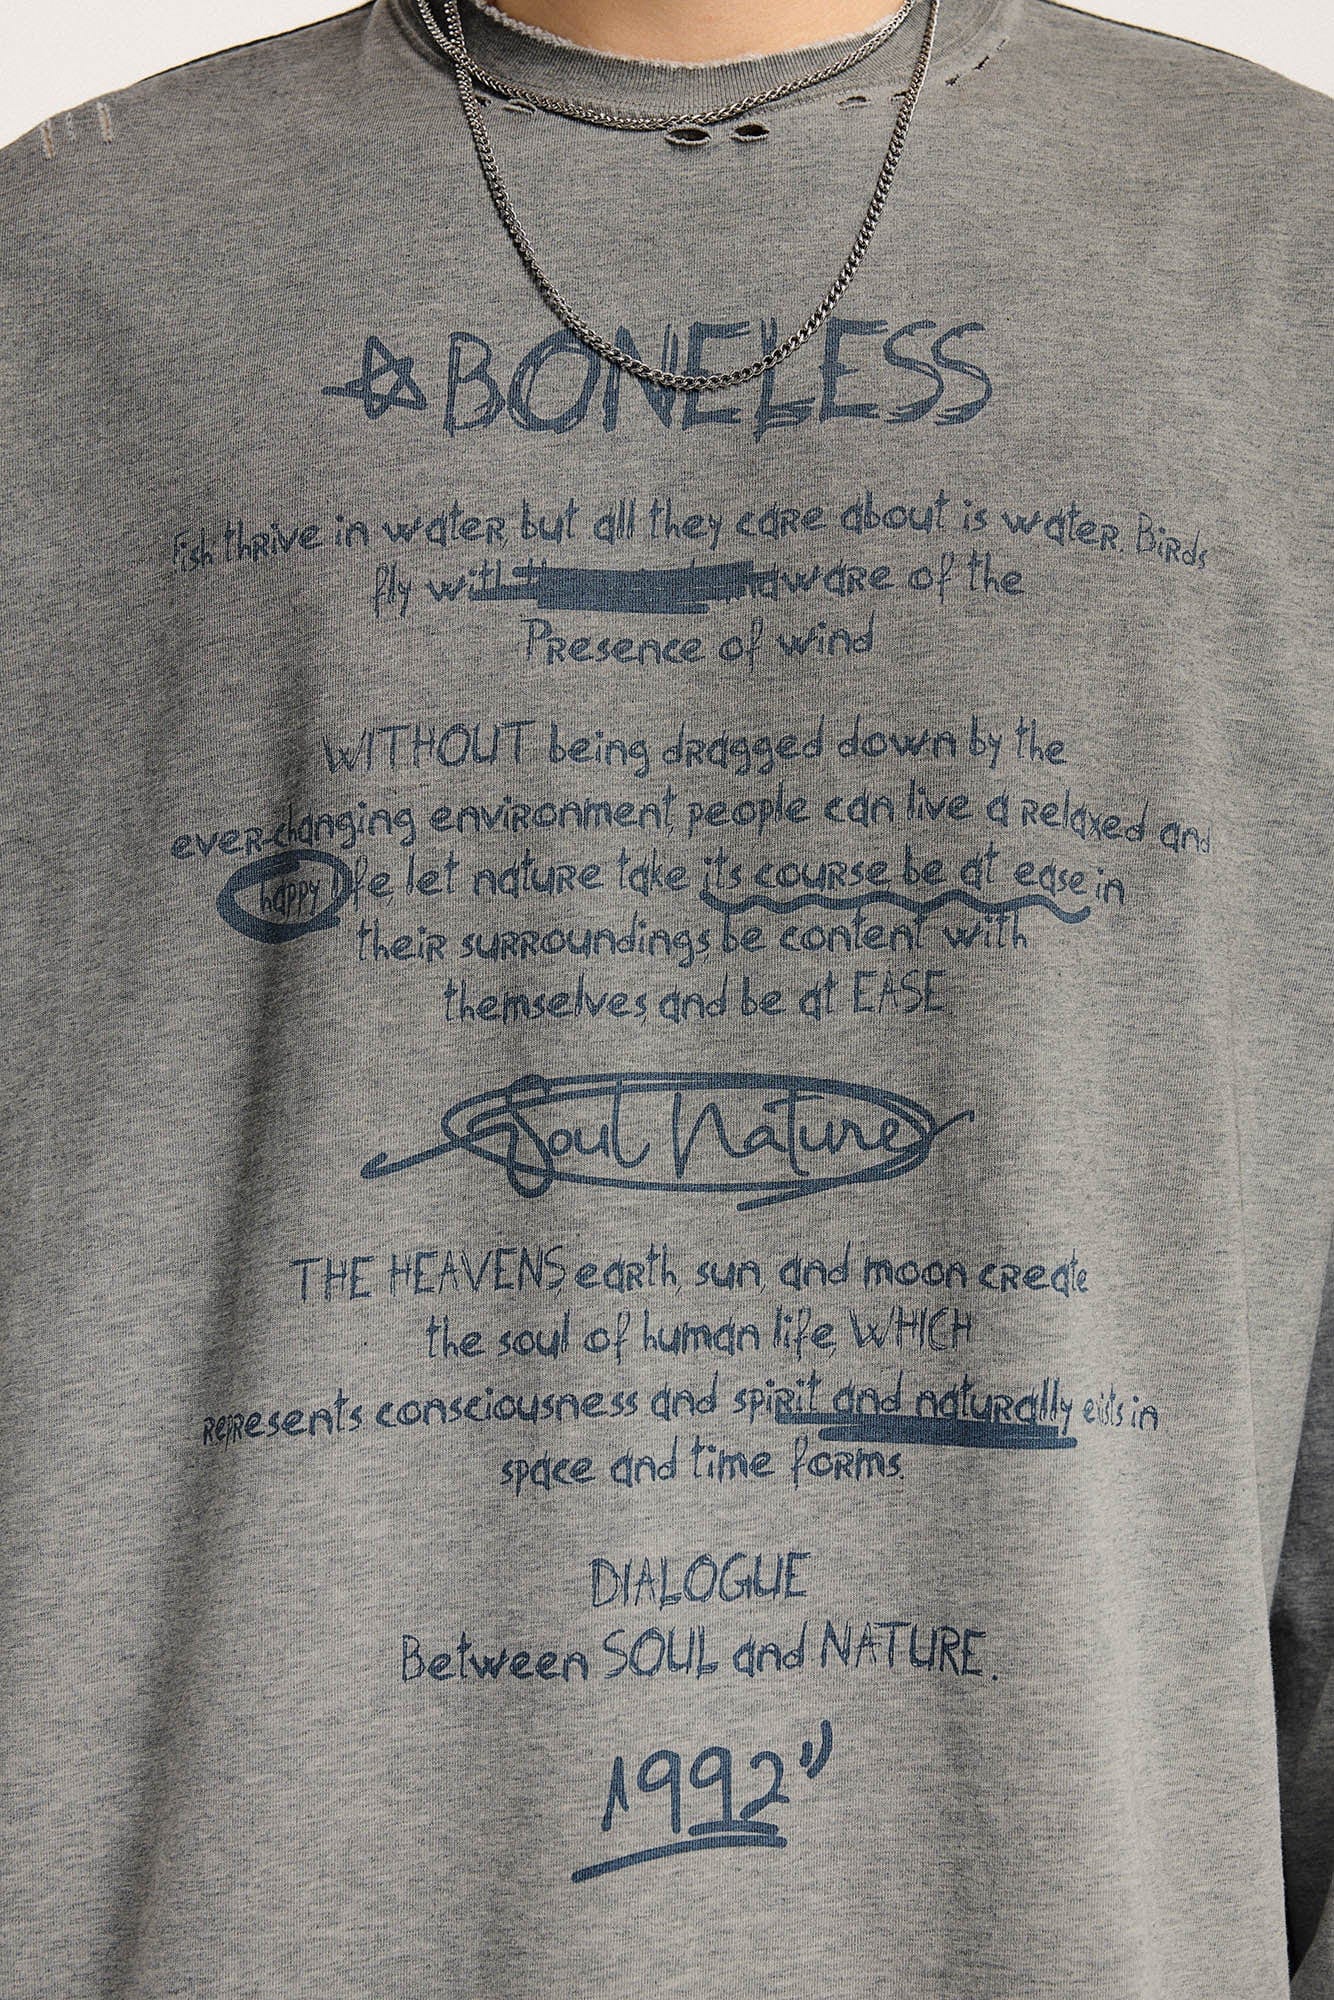 BONELESS
Fish thrive in water, but all they care about is water. Birds
fly with aware of the
Presence of wind
WITHOUT being dragged down by the
ever-changing environment, people can live a relaxed and
happy life, let nature take its course, be at ease in
their surroundings, be content with
themselves, and be at EASE
Soul Nature
THE HEAVENS, earth, sun, and moon create
the soul of human life, WHICH
represents consciousness and spirit and naturally exists in
space and time forms.
DIALOGUE
Between SOUL and NATURE.
1992"